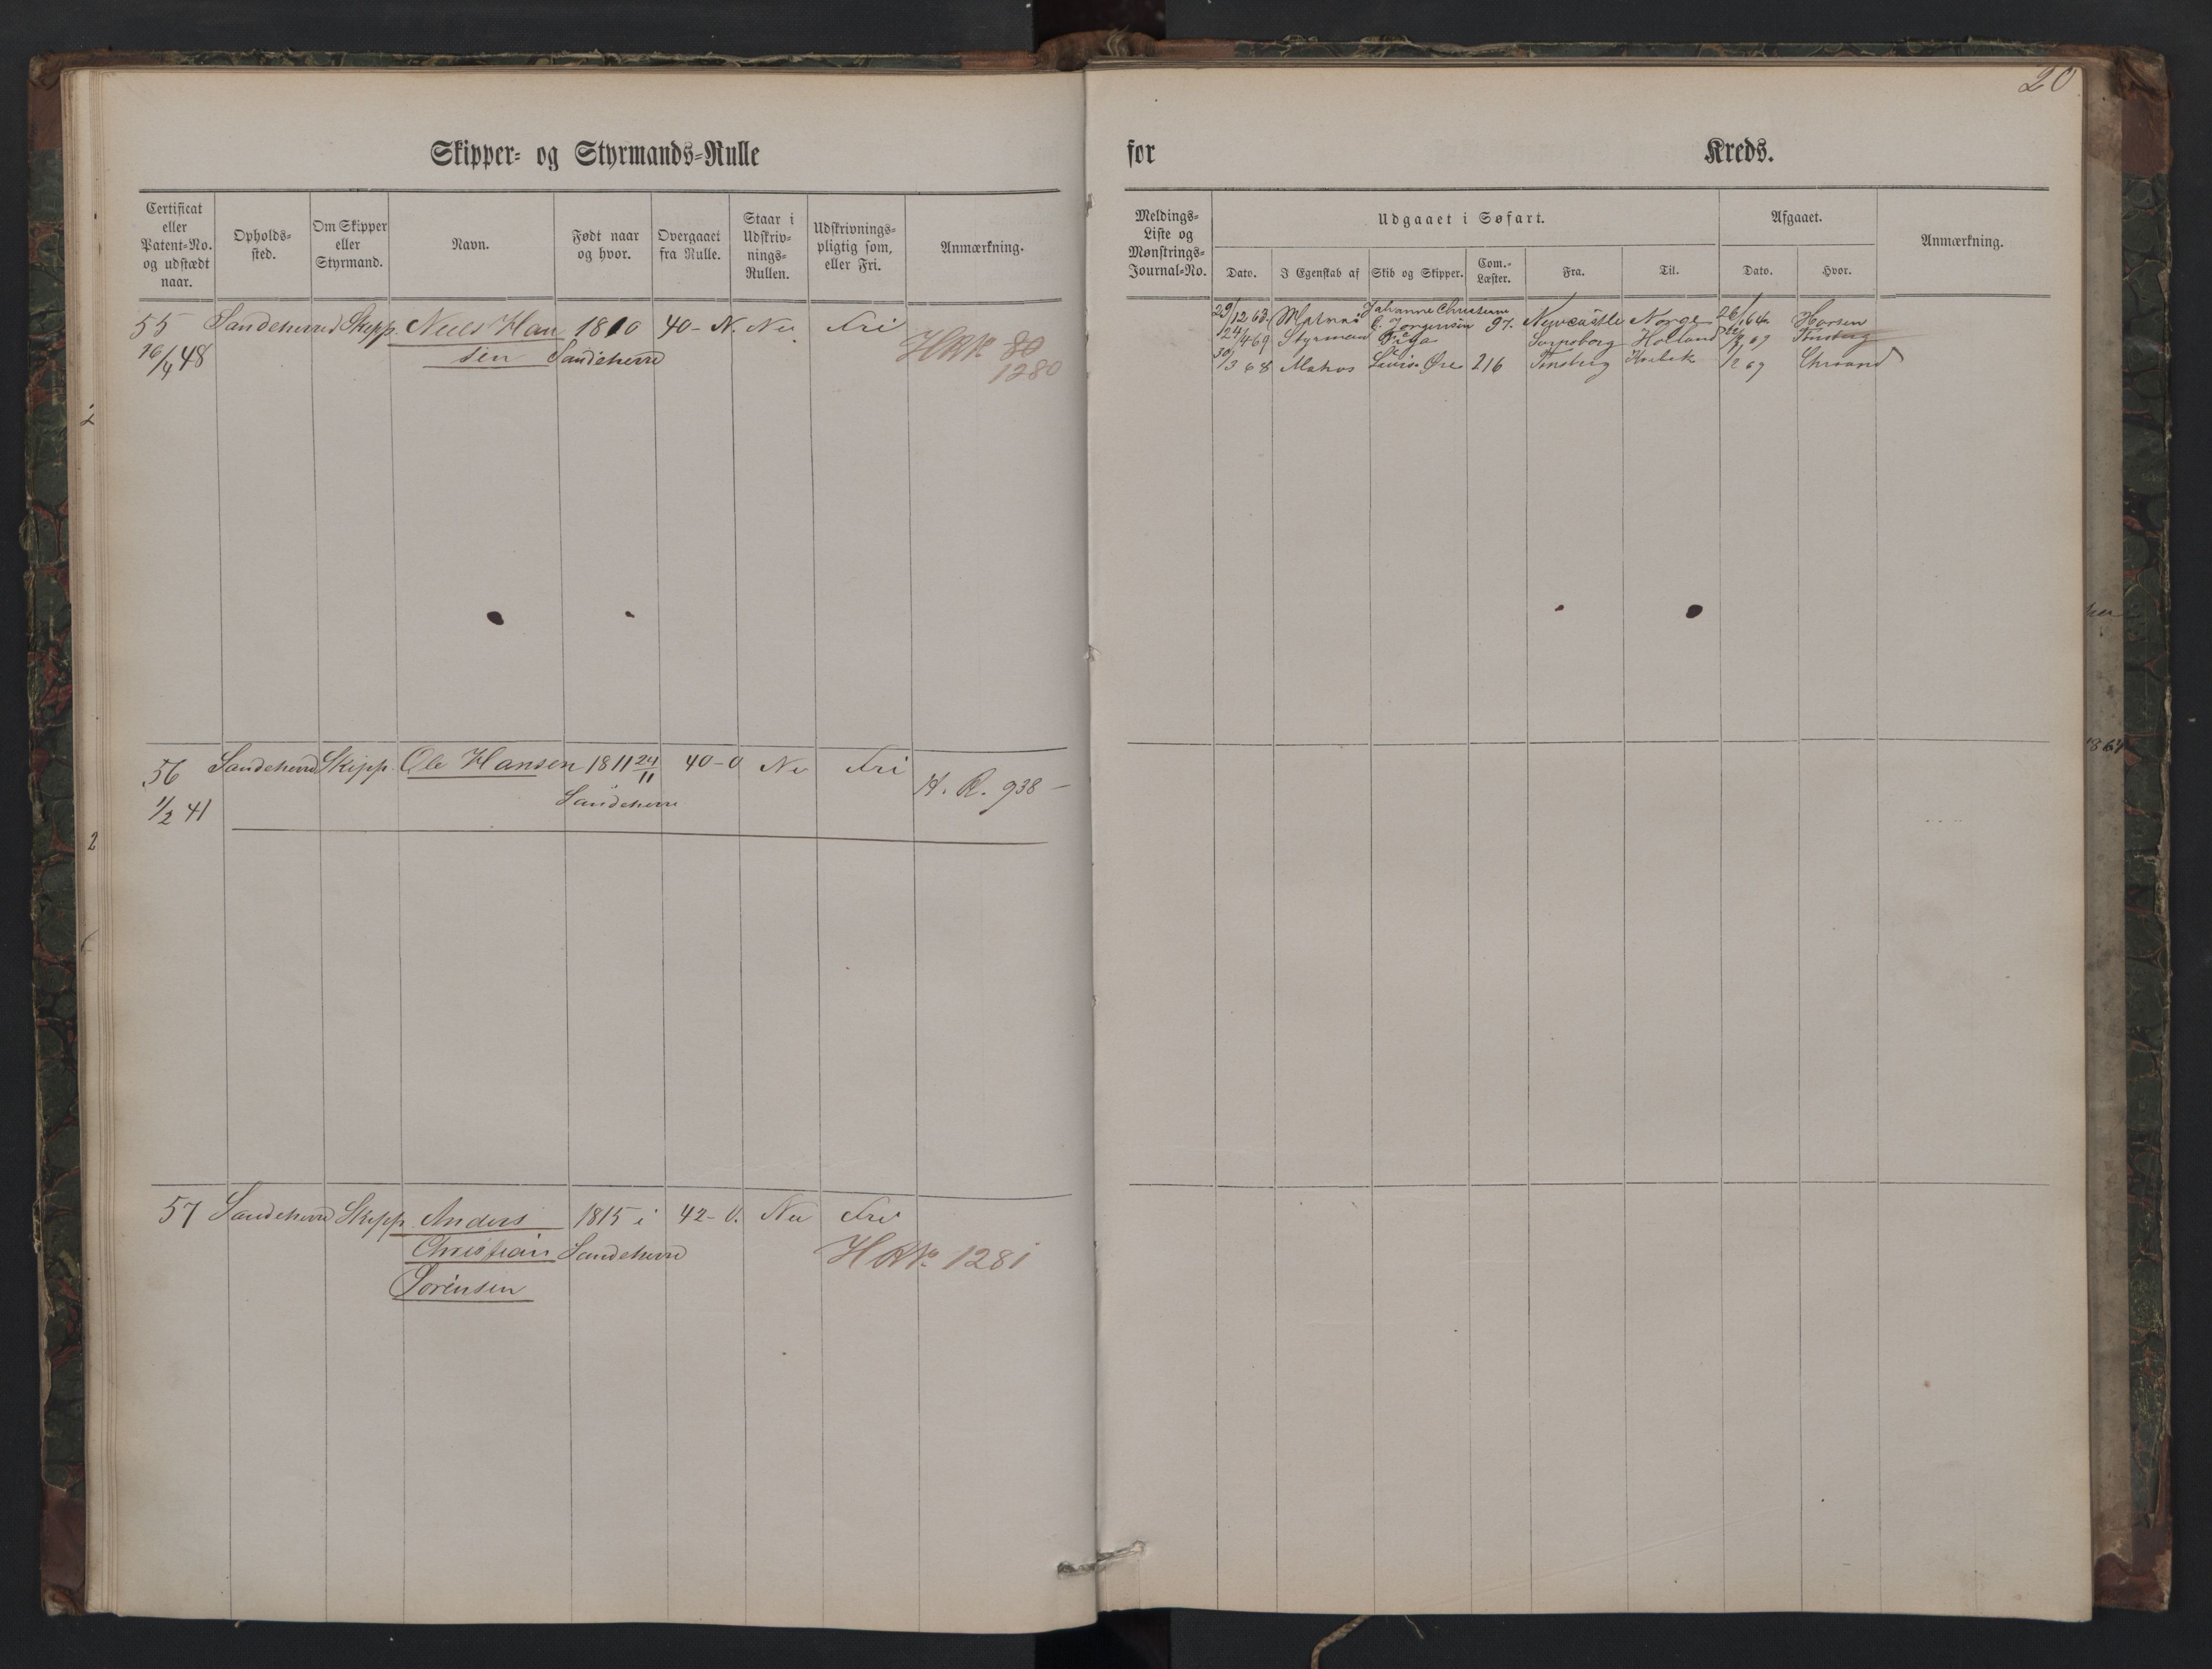 20
Skipper- og Styrmands-Rulle
for Kreds.
Certificat eller Patent-No. og udstædt naar.
Opholds-sted.
Om Skipper eller Styrmand.
Navn.
Født naar og hvor.
Overgaaet fra Rulle.
Staar i Udskriv-nings-Rullen.
Udskrivnings-pligtig som, eller Fri.
Anmærkning.
Meldings-Liste og Mønstrings-Journal-No.
Udgaaet i Søfart.
Dato.
I Egenskab af
Skib og Skipper.
Com.-Læster.
Fra.
Til.
Afgaaet.
Dato.
Hvor.
Anmærkning.
55 Sandeherred Skipp. Neels Han 1810 40-N. Nei Fri
16/4 48 sen Sandeherre HRNo 80
1280
29/12 63 Matros Johanne Christiane
C. Jørgensen 97. Newcastle Norge 26/1 64 Horten
24/4 69 Styrman Sarpsborg Holland 69 Tønsberg
30/3 68 Matros 216 Tønsberg 69 Chrsand
56 Sandeherred Skipp. Ole Hansen 1811 24/11 40-0 Nei Fri
1/2 41 Sandeherre H. R. 938 -
57 Sandeherred Skipp. Anders 1815 i 42-0. Nei Fri
Christian Sandeherre HRNo 1281
Sørensen